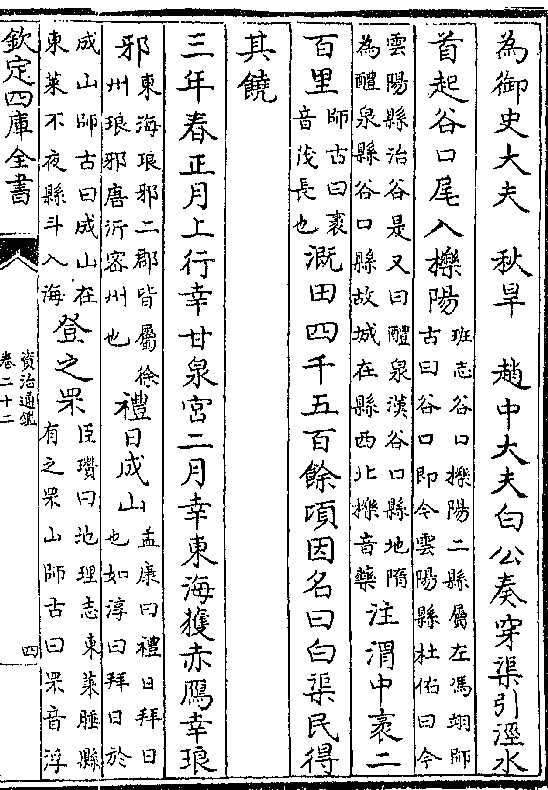 為御史大夫　秋旱　趙中大夫白公奏穿渠引涇水
首起谷口尾入櫟陽班志谷口櫟陽二縣屬左馮翊師古曰谷口即今雲陽縣杜佑曰今
雲陽縣治谷是又曰醴泉漢谷口縣地隋為醴泉縣谷口縣故城在縣西北櫟音藥注渭中袤二
百里師古曰袤音茂長也溉田四千五百餘頃因名曰白渠民得
其饒
三年春正月上行幸甘泉宮二月幸東海獲赤鴈幸琅
邪東海琅邪二郡皆屬徐州琅邪唐沂密州也禮日成山孟康曰禮日拜日也如淳曰拜日於
成山師古曰成山在東萊不夜縣斗入海登之罘臣瓚曰地理志東萊腄縣有之罘山師古曰罘音浮
欽定四庫全書
資治通鑑
卷二十二
四